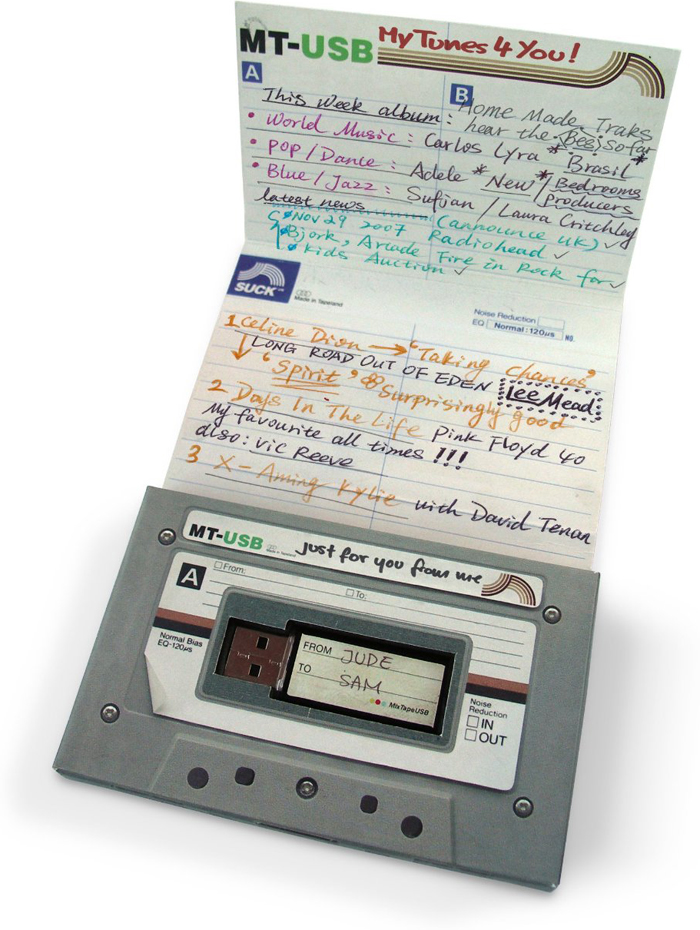 MT-USB My Tunes 4 You!
A
B
This Week album: Home Made Traks
hear the Bee, so far
• World Music: Carlos Lyra * Brasil *
• Pop/Dance: Adele * New/Bedrooms
producers
• Blue/Jazz: Sufjan/Laura Critchley
latest news
Nov 29 2007 Radiohead ✓
(announce UK) ✓
Bjork, Arcade Fire in Rock for ✓
Kids Auction ✓
SUCK
Made in Tapeland
Noise Reduction
EQ Normal: 120µs NO.
1 Celine Dion → 'Taking Chances'
LONG ROAD OUT OF EDEN Lee Mead
'Spirit' & Surprisingly good
2 Days In The Life Pink Floyd 40
My favourite all times !!!
also: Vic Reeve
3 X-Aming Kylie with David Tenan
MT-USB Made in Tapeland just for you from me
A
From:
To:
Normal Bias
EQ-120µs
FROM JUDE
TO SAM
MixTapeUSB
Noise
Reduction
IN
OUT